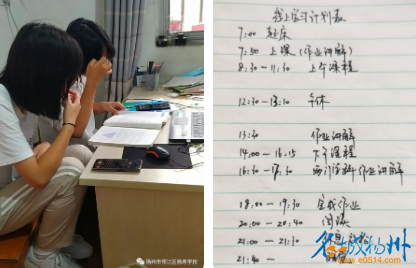 线上学习计划表
7:00 起床
7:50 上课（作业讲解）
8:30—11:30 上午课程
12:30—13:30 午休
13:30 作业讲解
14:00—16:15 下午课程
16:30—17:30 作业讲解
18:00—19:30 完成作业
20:00—20:40 阅读
21:00—21:30
21:40—
扬州市邗江区蒋王学校
名城扬州
www.e0514.com